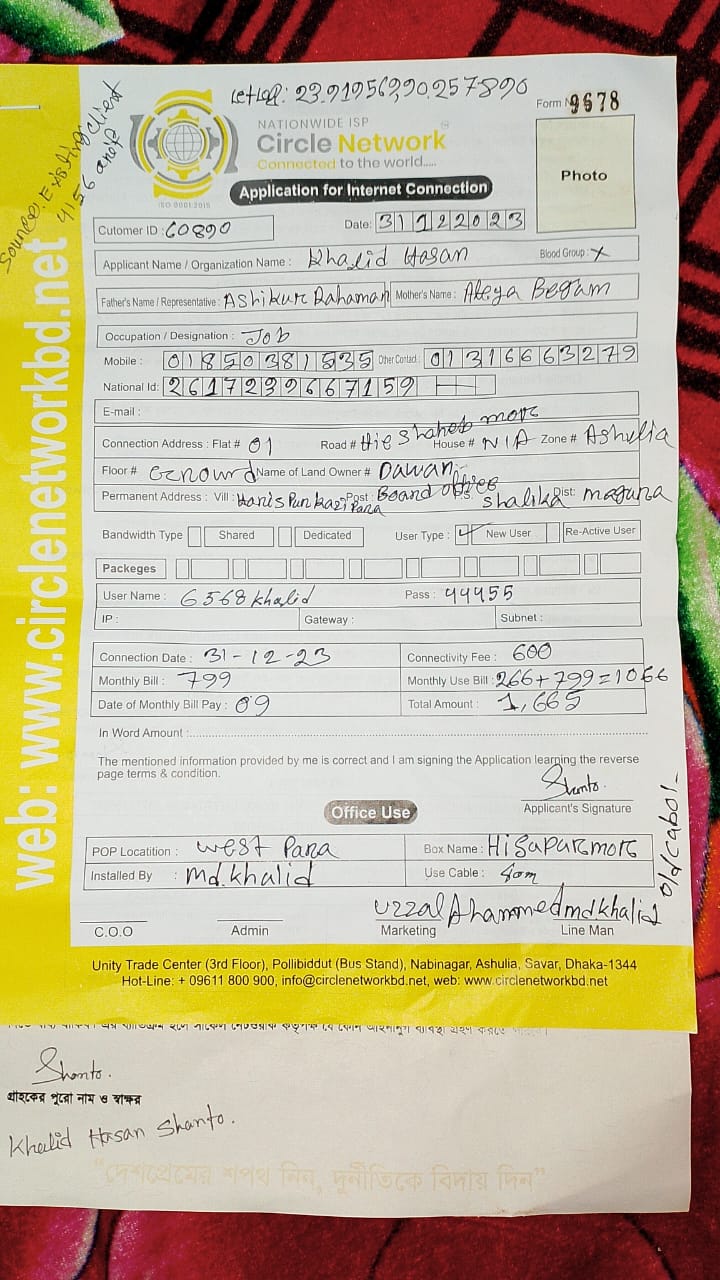 Let+Lon: 23.919569,90.257890
Form No 9678
Source: Existing Client
NATIONWIDE ISP
Circle Network
Connected to the world.....
ISO 9001:2015
Photo
Application for Internet Connection
Cutomer ID : 60890 Date: 31122023
Applicant Name / Organization Name : Khalid Hasan Blood Group : X
Father's Name / Representative : Ashikur Rahaman Mother's Name : Begam
Occupation / Designation : Job
Mobile : 01850381535 Other Contact : 01316663279
National Id: 2617239667159
E-mail :
Connection Address : Flat # 01 Road # House # N/A Zone # Ashulia
Floor # Name of Land Owner # Dawan
Permanent Address : Vill : Post : Board office P.S: Shalika Dist: magura
Bandwidth Type Shared Dedicated User Type : New User Re-Active User
Packeges
User Name : 6568khalid Pass : 44455
IP : Gateway : Subnet :
Connection Date : 31-12-23 Connectivity Fee : 600
Monthly Bill : 799 Monthly Use Bill : 266+799=1066
Date of Monthly Bill Pay : 09 Total Amount : 1,665
In Word Amount :
The mentioned information provided by me is correct and I am signing the Application learning the reverse
page terms & condition.
Shanto.
Applicant's Signature
Office Use
POP Locatition : west Para Box Name :
Installed By : md.khalid Use Cable :
old cabol-
uzzal Ahammed md khalid
C.O.O Admin Marketing Line Man
web: www.circlenetworkbd.net
Unity Trade Center (3rd Floor), Pollibiddut (Bus Stand), Nabinagar, Ashulia, Savar, Dhaka-1344
Hot-Line: + 09611 800 900, info@circlenetworkbd.net, web: www.circlenetworkbd.net
Shanto.
গ্রাহকের পুরো নাম ও স্বাক্ষর
Khalid Hasan Shanto.
“দেশপ্রেমের শপথ নিন, দুর্নীতিকে বিদায় দিন”